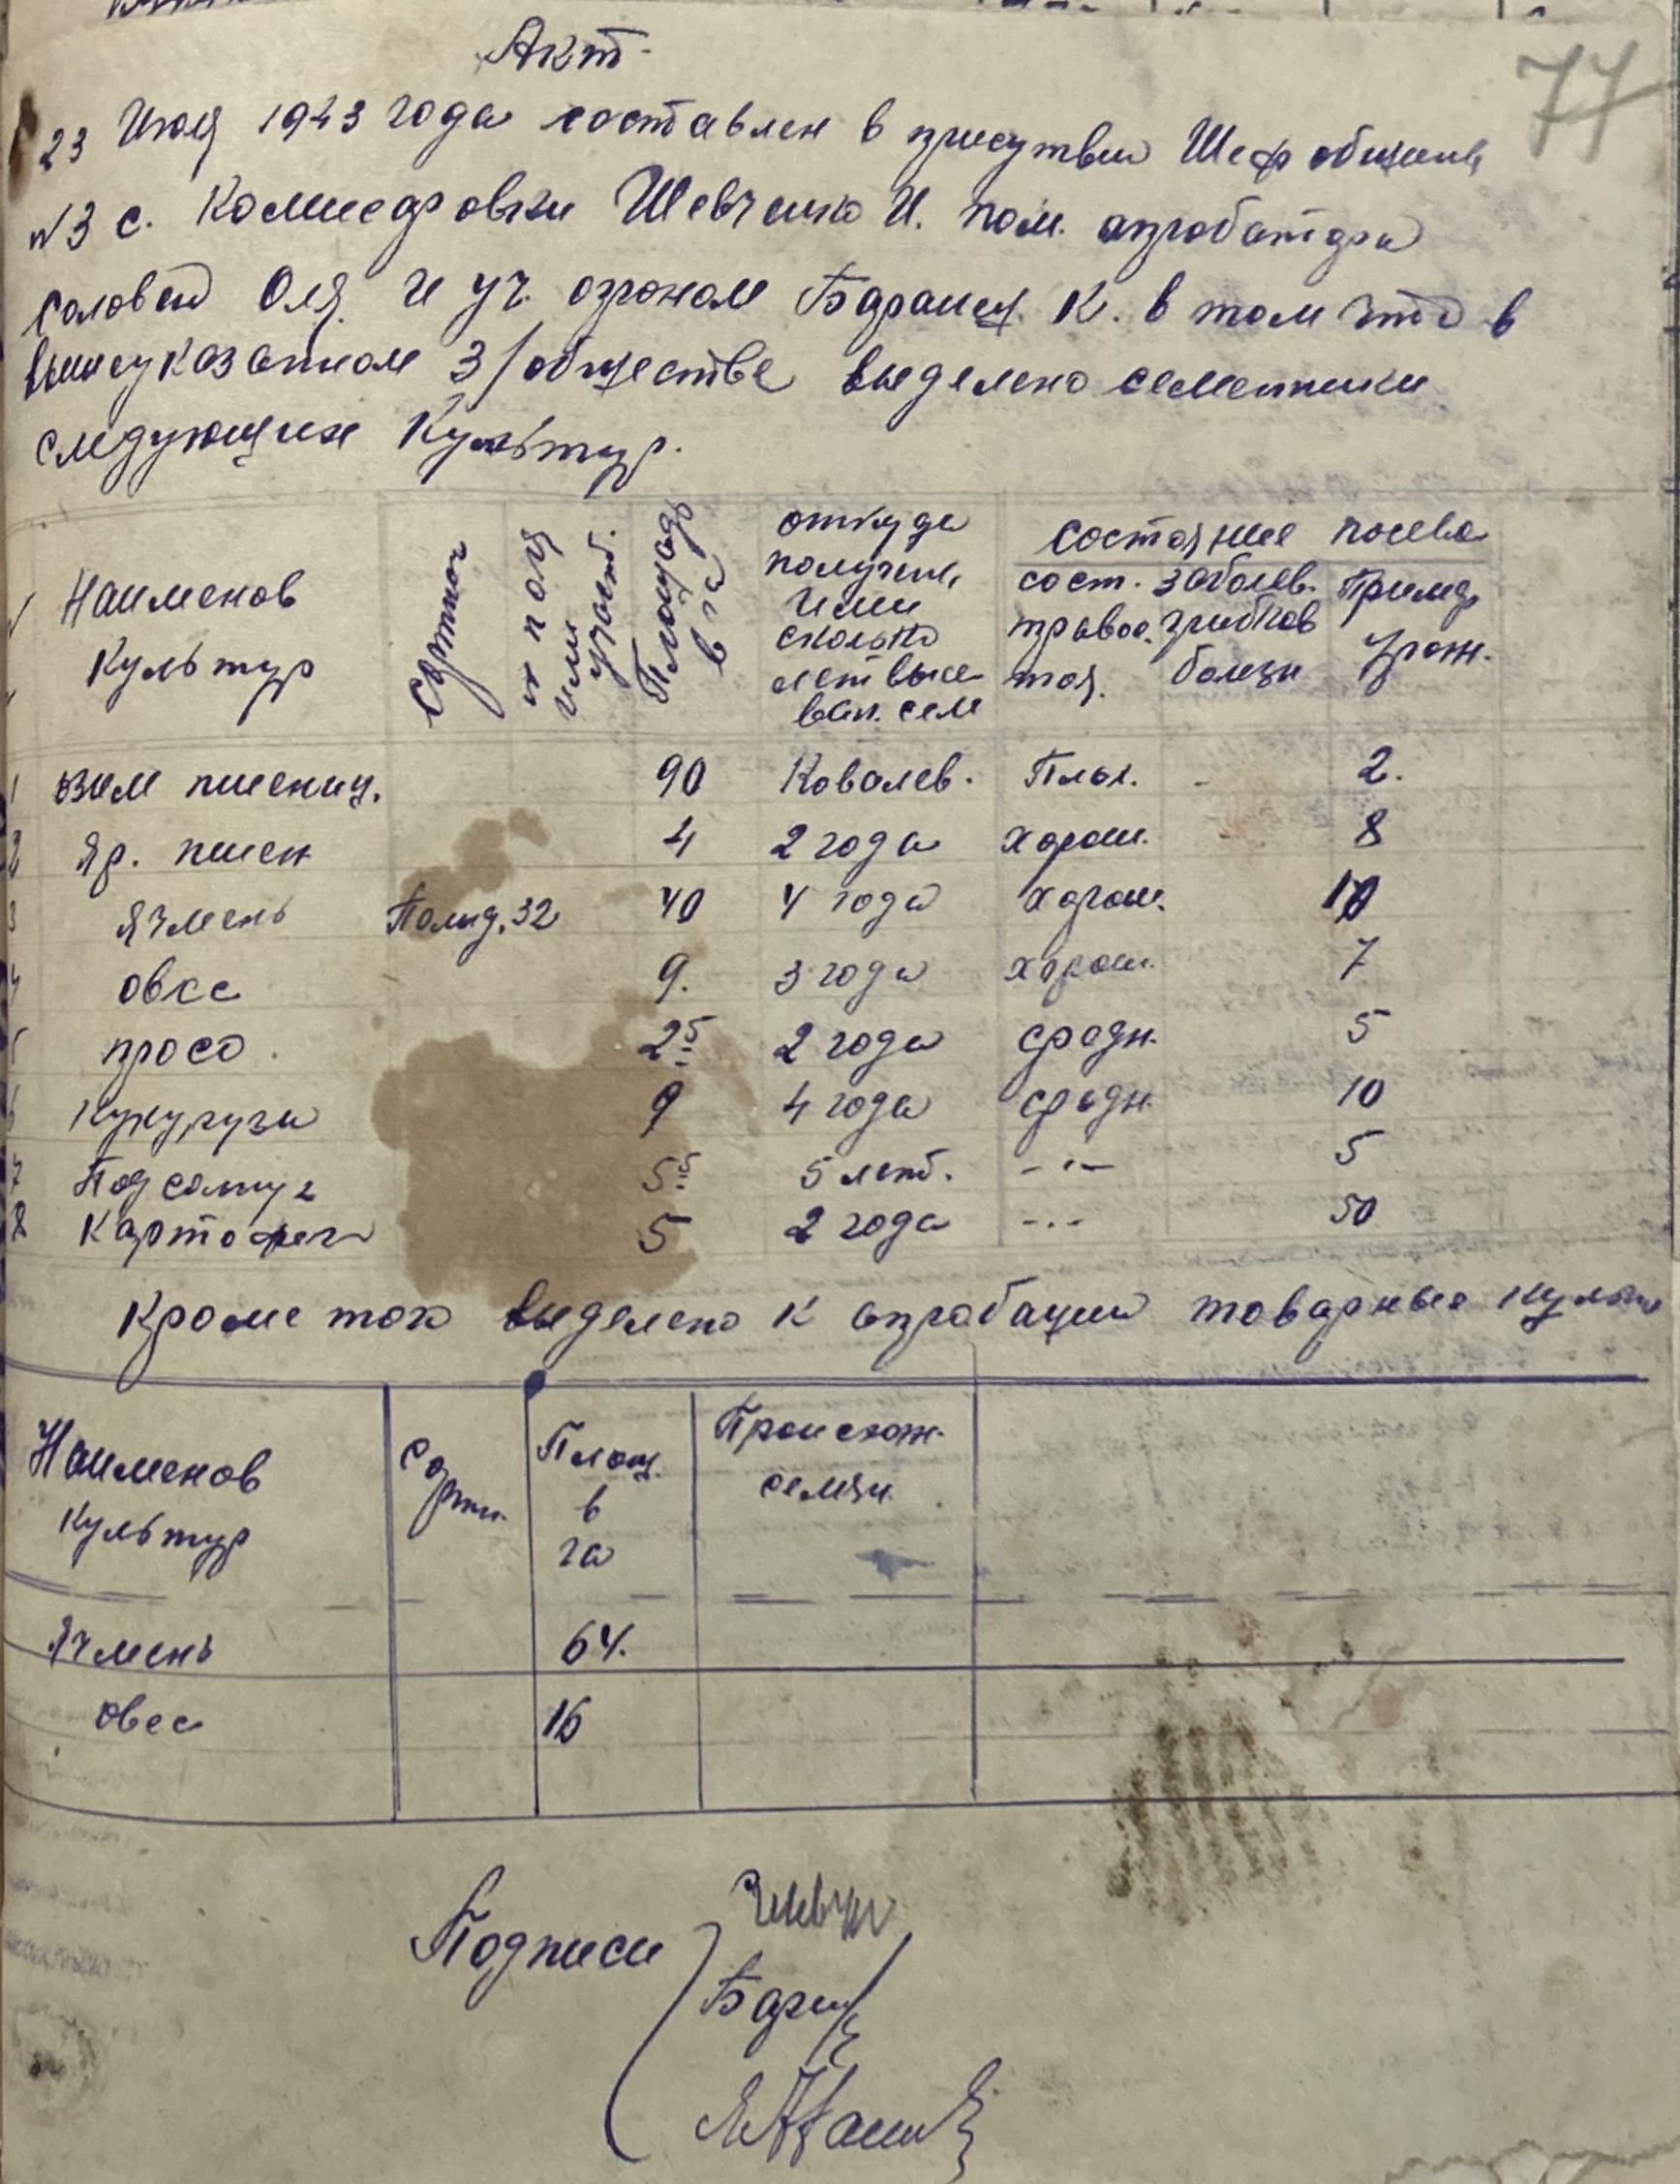 77
Акт
23 Июля 1943 года составлен в присутвии Шеф общины
№3 с. Шевченко И. пом. апробатора
Соловей Оля и уч. агроном К. в том что в
вышеуказанном З/обществе выделено семенники
следующих Культур.
Наименов Культур | Сортность | № поля или участ. | Площадь в га | откуда получены или сколько лет высевал. сем | Состояние посева
сост. травостоя. | заболев. грибков болезн | Пример урож.
1 озим пшениц. 90 Ковалев. Плох. - 2.
2 Яр. пшен 4 2 года хорош. - 8
3 Ячмень 32 40 4 года хорош. 10
4 овес 9. 3 года хорош. 7
5 просо 2 5 2 года средн. 5
6 Кукуруза 9 4 года средн. 10
7 Подсолнух 5 5 5 лет. -"- 5
8 Картофель 5 2 года -"- 50
Кроме того выделено к апробации товарные культ
Наименов Культур | Сортн. | Площ. в га | Происхож. семян
Ячмень 64.
овес 16
Подписи